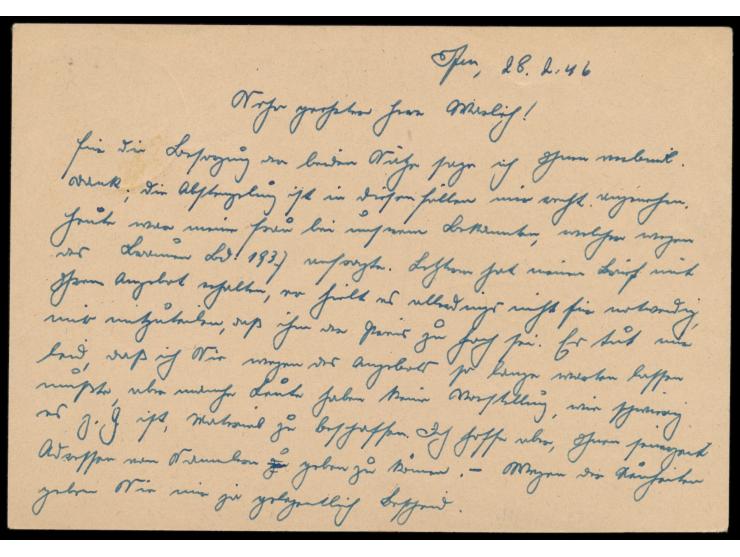 28. 2. 46
Sehr geehrter Herr Warlich!
Für die Besorgung der beiden Sätze sage ich Ihnen verbindl.
Dank, die Abstempelung ist in diesen Fällen mir recht angenehm.
Heute war meine Frau bei unserem Bekannten, welcher wegen
des Braunen Bd. 1937 anfragte. Letzterer hat meinen Brief mit
Ihrem Angebot erhalten, er hielt es allerdings nicht für notwendig,
mir mitzuteilen, daß ihm der Preis zu hoch sei. Es tut mir
leid, daß ich Sie wegen des Angebots so lange warten lassen
mußte, aber manche Leute haben keine Vorstellung, wie schwierig
es z. Z. ist, Material zu beschaffen. Ich hoffe aber, Ihnen seinerzeit
Adressen von Sammlern geben zu können. – Wegen der Neuheiten
geben Sie mir ja gelegentlich Bescheid.